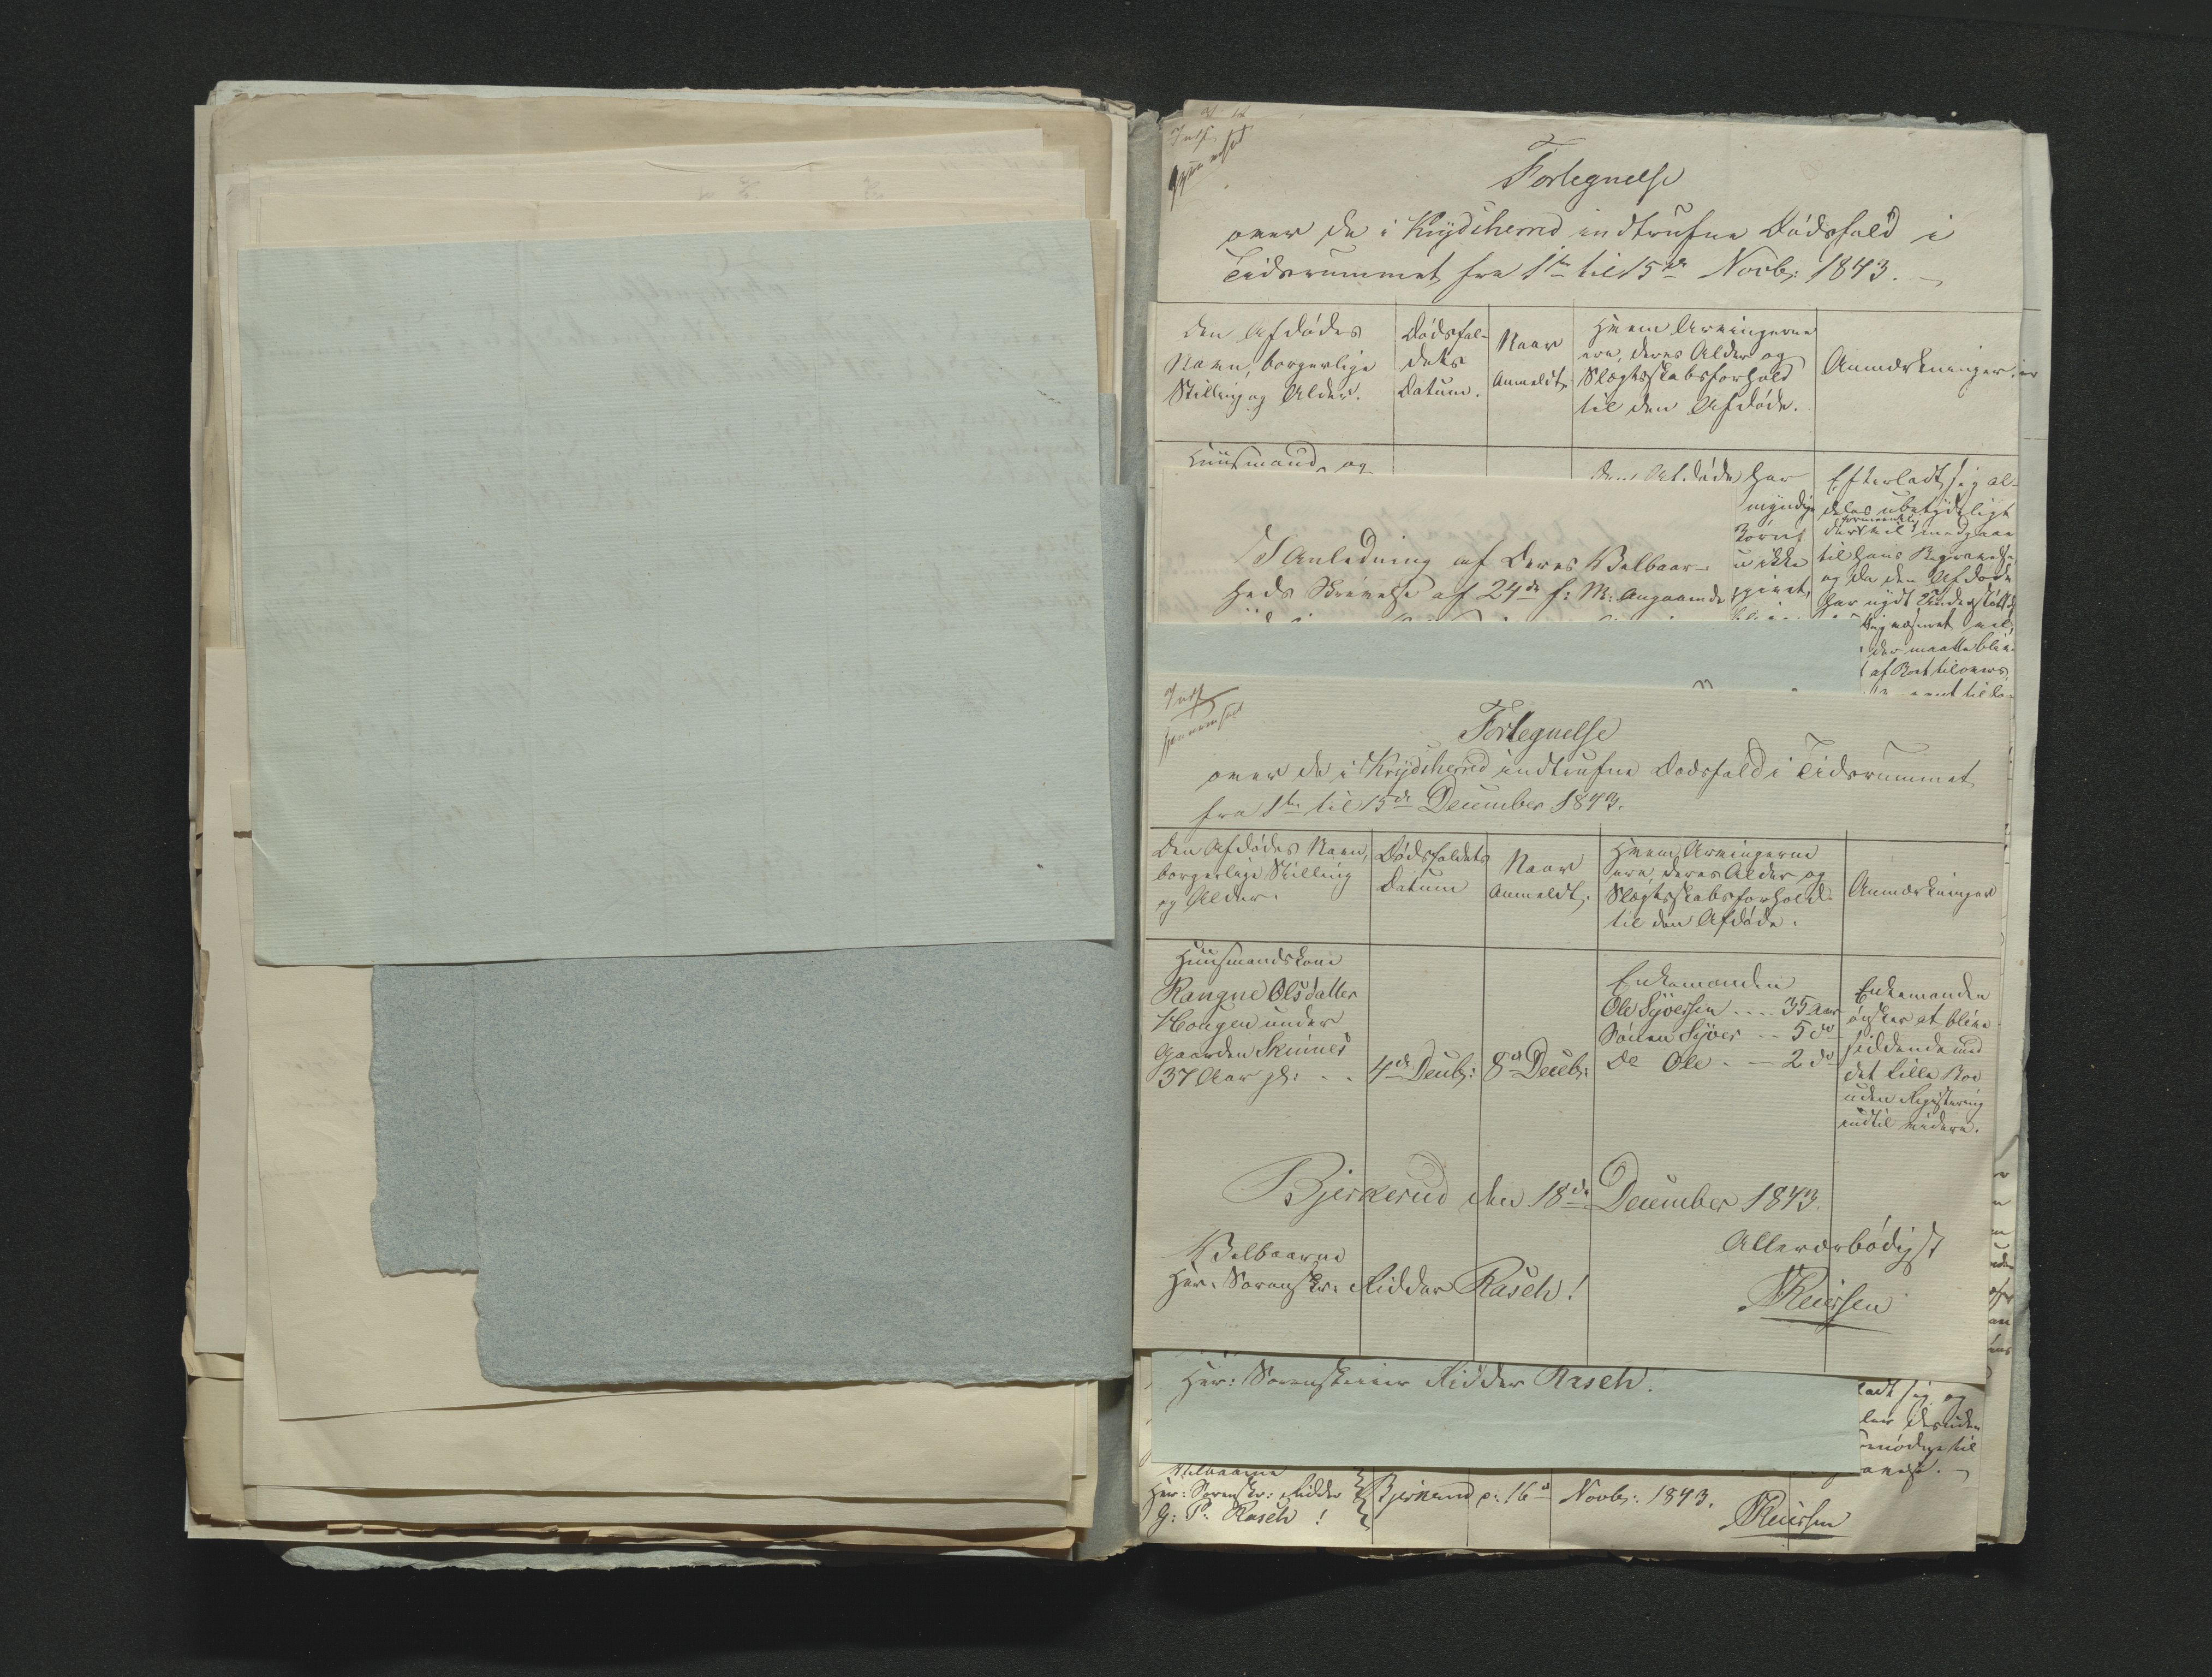 Fortegnelse
over de i Krydsherred indtrufne Dødsfald i
Tidsrummet fra 1ste til 15de Novbr: 1843.
Den Afdødes
Navn, borgerlige
Stilling og Alder.
Dødsfal-
dets
Datum.
Naar
Anmeldt.
Hvem Arvingerne
ere, deres Alder og
Slægtsskabsforhold
til den Afdøde.
Anmærkninger.
Huusmand og
Den Afdøde har
myndige
Efterladt sig al-
deles ubetydeligt
til hans Begravelse,
og da den Afdøde
har nydt Understøttelse
der maatte bliv-
af Boet tilovers,
I Anledning af Deres Velbaar-
heds Skrivelse af 24de f: M: angaaende
Fortegnelse
over de i Krydsherred indtrufne Dødsfald i Tidsrummet
fra 1ste til 15de December 1843.
Den Afdødes Navn,
borgerlige Stilling
og Alder.
Dødsfaldets
Datum
Naar
Anmeldt.
Hvem Arvingerne
ere, deres Alder og
Slægtsskabsforhold
til den Afdøde.
Anmærkninger
Huusmandskone
Rangne Olsdatter
Hougen under
Gaarden Skinnes
37 Aar gl:
4de Decbr:
8de Decbr:
Enkemanden
Ole Syversen .... 35 Aar
Sönnen Syver .. 5 do
De Ole . — 2 do
Enkemanden
ønsker at blive
siddende med
det lille Boe
uden Registrering
indtil videre.
Bjerkerud den 18de December 1843.
Allerærbødigst
Reiersen
Velbaarne
Herr Sorenskr. Ridder Rasch!
Herr: Sorenskriver Ridder Rasch.
ladt sig og
desuden
til
Velbaarne
Herr: Sorenskr: Ridder
G: P: Rasch !
Bjerkerud d: 16de Novbr: 1843.
Reiersen